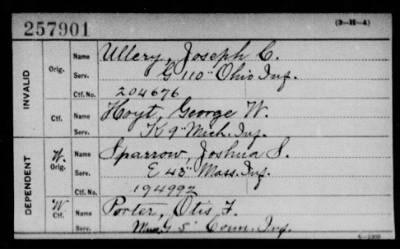 257901
(3-H-4)
INVALID
Orig. Name Ullery, Joseph C.
Serv. G 110" Ohio Inf.
Ctf. No. 204676
Ctf. Name Hoyt, George W.
Serv. K 9" Mich. Inf.
DEPENDENT
W. Orig. Name Sparrow, Joshua S.
Serv. E 43" Mass. Inf.
Ctf. No. 194992
W Ctf. Name Porter, Otis F.
Serv. G 5" Conn. Inf.